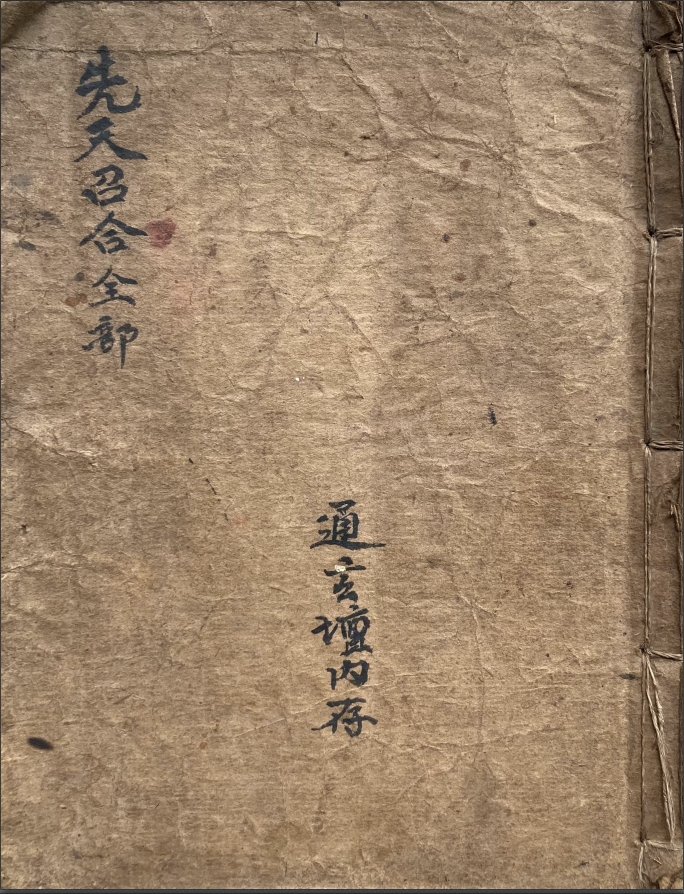 先天召合全部
通玄壇内存